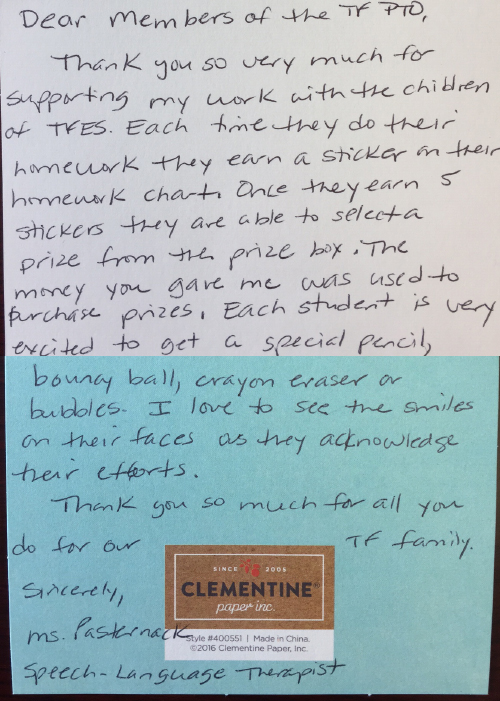 Dear Members of the TF PTO,
Thank you so very much for
supporting my work with the children
of TFES. Each time they do their
homework they earn a sticker on their
homework chart. Once they earn 5
stickers they are able to select a
prize from the prize box. The
money you gave me was used to
purchase prizes. Each student is very
excited to get a special pencil,
bouncy ball, crayon eraser or
bubbles. I love to see the smiles
on their faces as they acknowledge
their efforts.
Thank you so much for all you
do for our TF family.
SINCE 2005
CLEMENTINE®
paper inc.
Sincerely,
Ms. Pasternack
Style #400551 | Made in China.
©2016 Clementine Paper, Inc.
Speech-Language Therapist